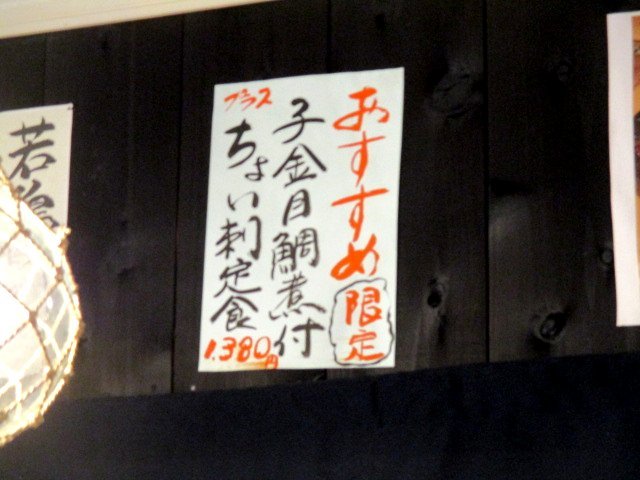 おすすめ 限定
子金目鯛煮付
プラス ちょい刺定食
1,380円
若鶏